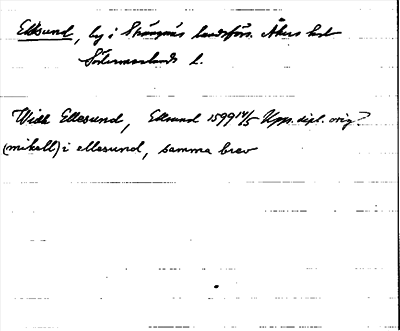 Eksund, by i Strängnäs landsförs. Åkers hd
Södermanlands l.
Widh Ellesund, Eksund 1599 14/5 Upps. dipl. orig?
(mikell) i ellesund, samma brev